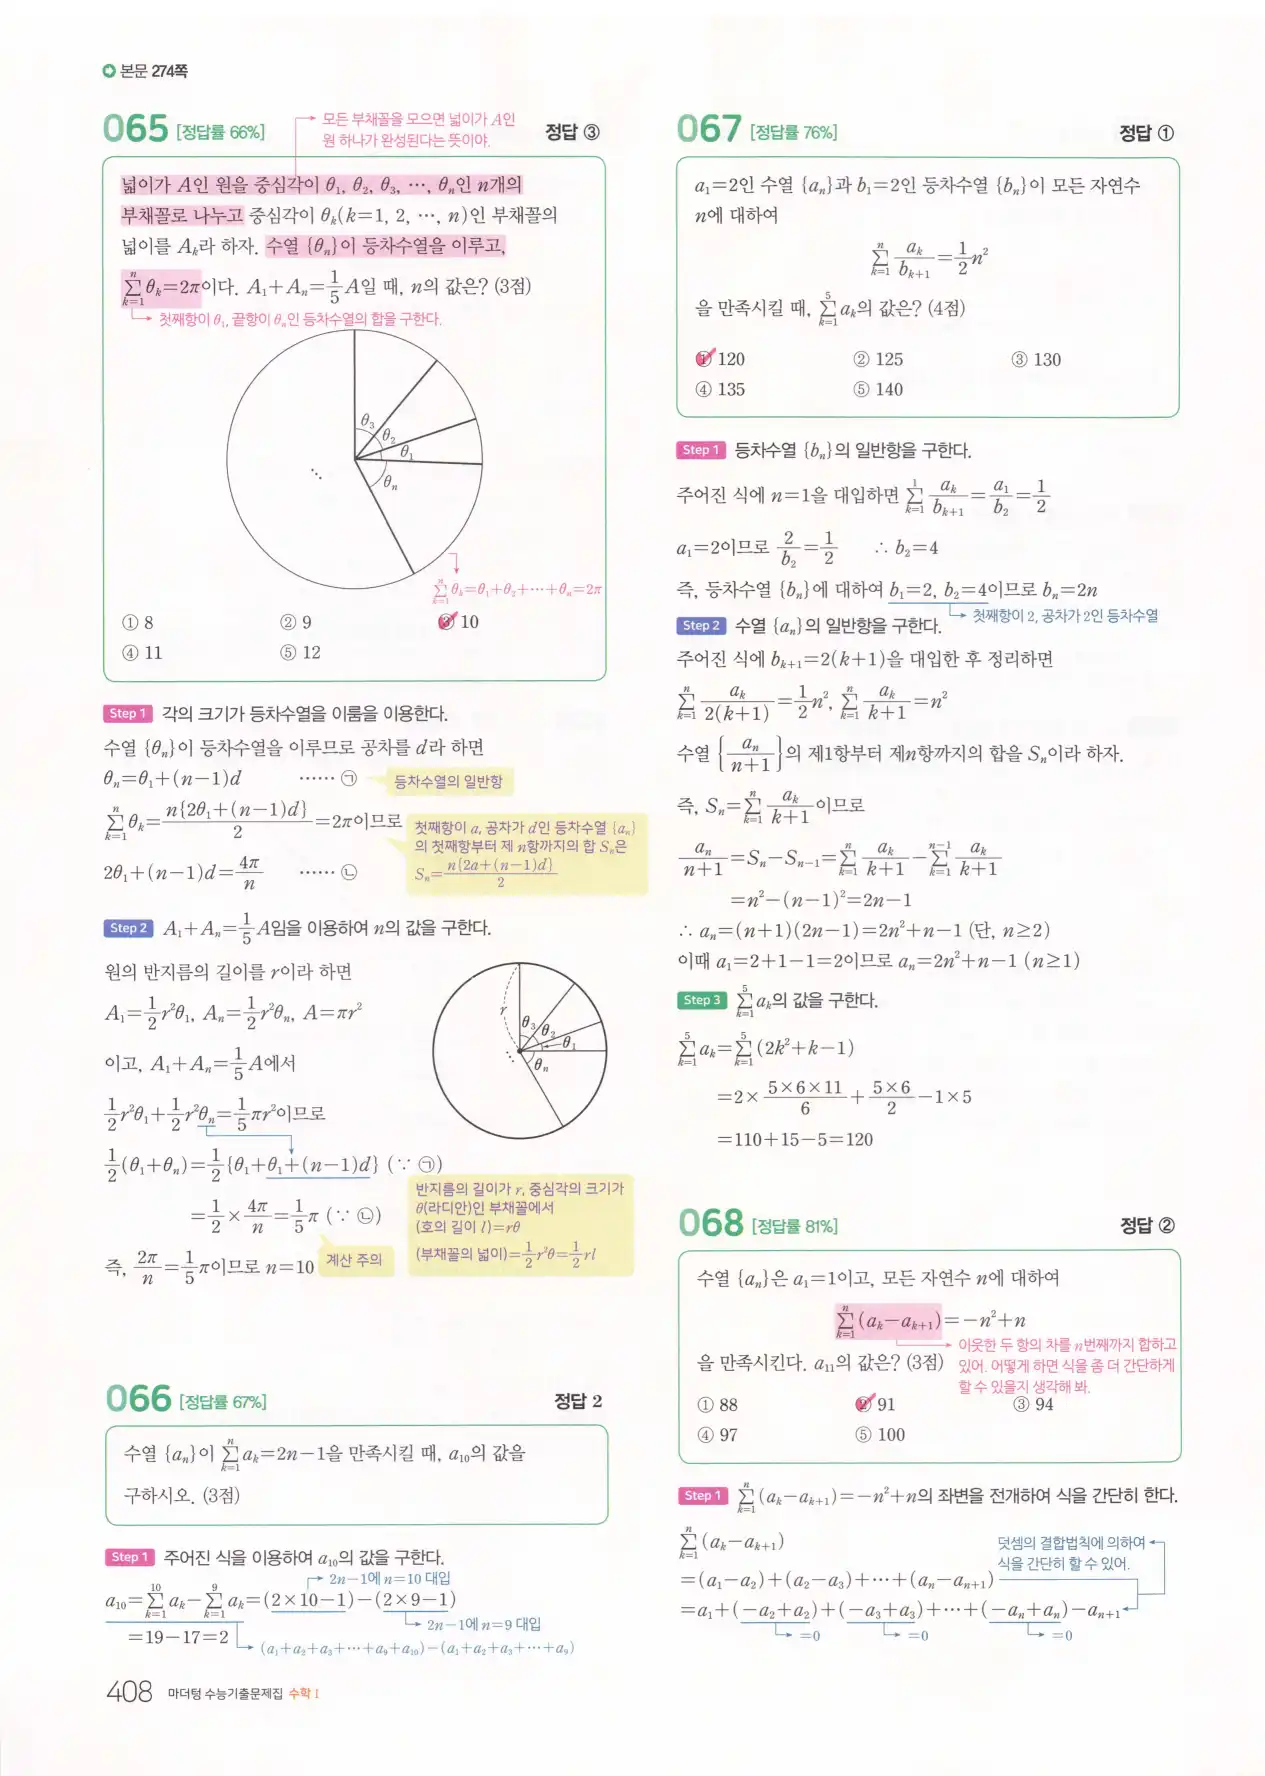 본문 274쪽
065 [정답률 66%]
모든 부채꼴을 모으면 넓이가 A인
원 하나가 완성된다는 뜻이야.
정답 ③
넓이가 A인 원을 중심각이 θ₁, θ₂, θ₃, ⋯, θₙ인 n개의
부채꼴로 나누고 중심각이 θₖ(k=1, 2, ⋯, n)인 부채꼴의
넓이를 Aₖ라 하자. 수열 {θₙ}이 등차수열을 이루고,
∑_{k=1}^{n} θₖ=2π이다. A₁+Aₙ=1/5 A일 때, n의 값은? (3점)
첫째항이 θ₁, 끝항이 θₙ인 등차수열의 합을 구한다.
θ₃
θ₂
θ₁
θₙ
⋱
∑_{k=1}^{n} θₖ=θ₁+θ₂+⋯+θₙ=2π
① 8 ② 9 ③ 10
④ 11 ⑤ 12
Step 1 각의 크기가 등차수열을 이룸을 이용한다.
수열 {θₙ}이 등차수열을 이루므로 공차를 d라 하면
θₙ=θ₁+(n−1)d ⋯⋯ ㉠ 등차수열의 일반항
∑_{k=1}^{n} θₖ=n{2θ₁+(n−1)d}/2=2π이므로
첫째항이 a, 공차가 d인 등차수열 {aₙ}
의 첫째항부터 제 n항까지의 합 Sₙ은
Sₙ=n{2a+(n−1)d}/2
2θ₁+(n−1)d=4π/n ⋯⋯ ㉡
Step 2 A₁+Aₙ=1/5 A임을 이용하여 n의 값을 구한다.
원의 반지름의 길이를 r이라 하면
A₁=1/2 r²θ₁, Aₙ=1/2 r²θₙ, A=πr²
이고, A₁+Aₙ=1/5 A에서
1/2 r²θ₁+1/2 r²θₙ=1/5 πr²이므로
1/2(θ₁+θₙ)=1/2{θ₁+θ₁+(n−1)d} (∵ ㉠)
=1/2×4π/n=1/5 π (∵ ㉡)
즉, 2π/n=1/5 π이므로 n=10 계산 주의
r
θ₃
θ₂
θ₁
θₙ
⋱
반지름의 길이가 r, 중심각의 크기가
θ(라디안)인 부채꼴에서
(호의 길이 l)=rθ
(부채꼴의 넓이)=1/2 r²θ=1/2 rl
066 [정답률 67%] 정답 2
수열 {aₙ}이 ∑_{k=1}^{n} aₖ=2n−1을 만족시킬 때, a₁₀의 값을
구하시오. (3점)
Step 1 주어진 식을 이용하여 a₁₀의 값을 구한다.
2n−1에 n=10 대입
a₁₀=∑_{k=1}^{10} aₖ−∑_{k=1}^{9} aₖ=(2×10−1)−(2×9−1)
2n−1에 n=9 대입
=19−17=2
(a₁+a₂+a₃+⋯+a₉+a₁₀)−(a₁+a₂+a₃+⋯+a₉)
408 마더텅 수능기출문제집 수학 Ⅰ
067 [정답률 76%] 정답 ①
a₁=2인 수열 {aₙ}과 b₁=2인 등차수열 {bₙ}이 모든 자연수
n에 대하여
∑_{k=1}^{n} aₖ/bₖ₊₁=1/2 n²
을 만족시킬 때, ∑_{k=1}^{5} aₖ의 값은? (4점)
① 120 ② 125 ③ 130
④ 135 ⑤ 140
Step 1 등차수열 {bₙ}의 일반항을 구한다.
주어진 식에 n=1을 대입하면 ∑_{k=1}^{1} aₖ/bₖ₊₁=a₁/b₂=1/2
a₁=2이므로 2/b₂=1/2 ∴ b₂=4
즉, 등차수열 {bₙ}에 대하여 b₁=2, b₂=4이므로 bₙ=2n
첫째항이 2, 공차가 2인 등차수열
Step 2 수열 {aₙ}의 일반항을 구한다.
주어진 식에 bₖ₊₁=2(k+1)을 대입한 후 정리하면
∑_{k=1}^{n} aₖ/2(k+1)=1/2 n², ∑_{k=1}^{n} aₖ/k+1=n²
수열 {aₙ/n+1}의 제1항부터 제n항까지의 합을 Sₙ이라 하자.
즉, Sₙ=∑_{k=1}^{n} aₖ/k+1이므로
aₙ/n+1=Sₙ−Sₙ₋₁=∑_{k=1}^{n} aₖ/k+1−∑_{k=1}^{n−1} aₖ/k+1
=n²−(n−1)²=2n−1
∴ aₙ=(n+1)(2n−1)=2n²+n−1 (단, n≥2)
이때 a₁=2+1−1=2이므로 aₙ=2n²+n−1 (n≥1)
Step 3 ∑_{k=1}^{5} aₖ의 값을 구한다.
∑_{k=1}^{5} aₖ=∑_{k=1}^{5} (2k²+k−1)
=2×5×6×11/6+5×6/2−1×5
=110+15−5=120
068 [정답률 81%] 정답 ②
수열 {aₙ}은 a₁=1이고, 모든 자연수 n에 대하여
∑_{k=1}^{n} (aₖ−aₖ₊₁)=−n²+n
이웃한 두 항의 차를 n번째까지 합하고
있어. 어떻게 하면 식을 좀 더 간단하게
할 수 있을지 생각해 봐.
을 만족시킨다. a₁₁의 값은? (3점)
① 88 ② 91 ③ 94
④ 97 ⑤ 100
Step 1 ∑_{k=1}^{n} (aₖ−aₖ₊₁)=−n²+n의 좌변을 전개하여 식을 간단히 한다.
∑_{k=1}^{n} (aₖ−aₖ₊₁)
덧셈의 결합법칙에 의하여
식을 간단히 할 수 있어.
=(a₁−a₂)+(a₂−a₃)+⋯+(aₙ−aₙ₊₁)
=a₁+(−a₂+a₂)+(−a₃+a₃)+⋯+(−aₙ+aₙ)−aₙ₊₁
=0 =0 =0